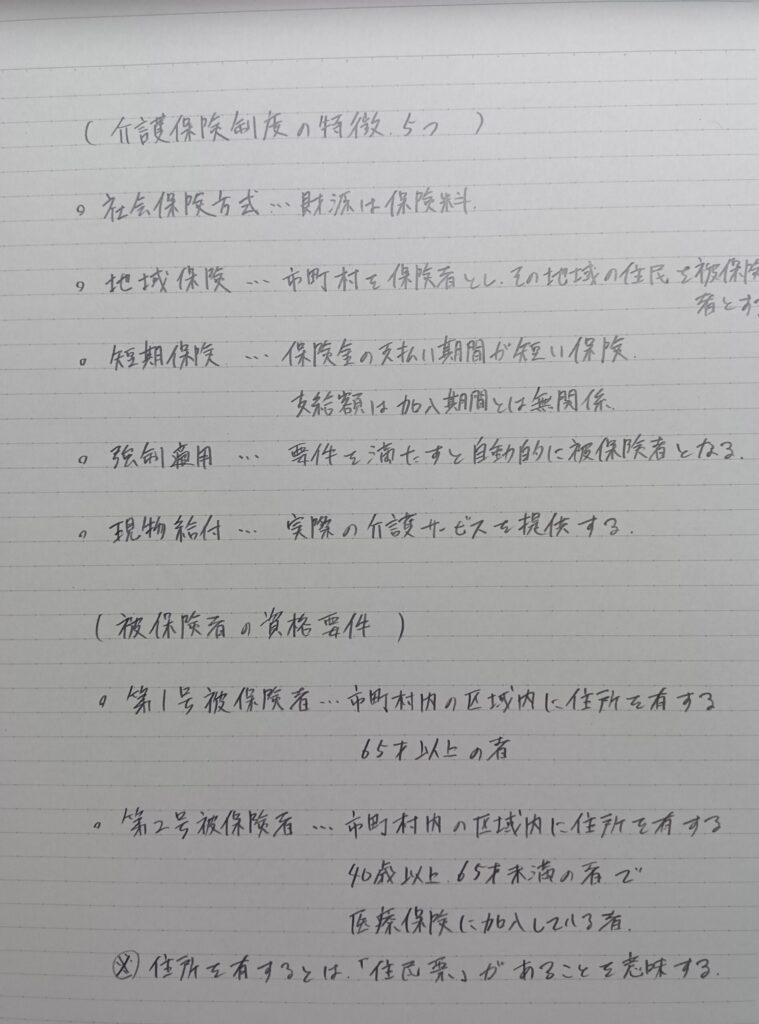 （介護保険制度の特徴、5つ　）
。社会保険方式…財源は保険料.
。地域保険 … 市町村を保険者とし、その地域の住民を被保険
者とす
。短期保険 … 保険金の支払い期間が短い保険.
支給額は加入期間とは無関係.
。強制適用 … 要件を満たすと自動的に被保険者となる.
。現物給付 … 実際の介護サービスを提供する.
（被保険者の資格要件　）
。第1号被保険者 … 市町村内の区域内に住所を有する
65才以上の者
。第2号被保険者 … 市町村内の区域内に住所を有する
40歳以上 65才未満の者で
医療保険に加入している者.
※ 住所を有するとは、「住民票」があることを意味する.